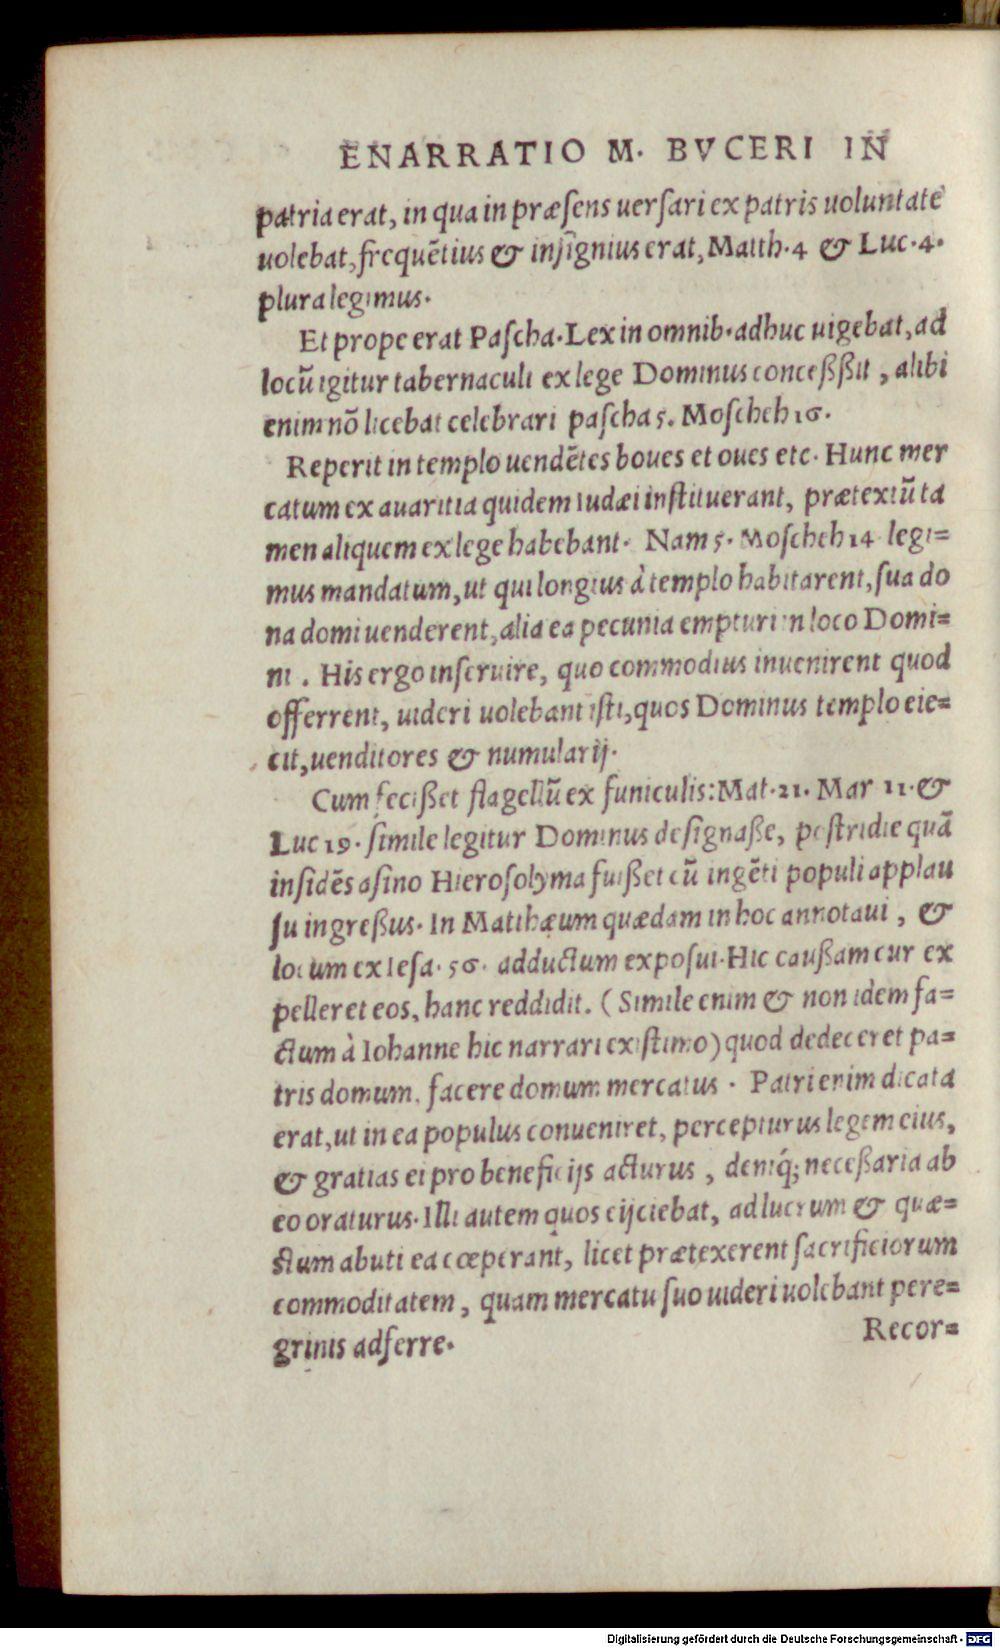 ENARRATIO M. BVCERI IN
patria erat, in qua in præſens uerſari ex patris uoluntate
uolebat, frequẽtius & inſignius erat, Matth. 4 & Luc. 4.
plura legimus.
Et prope erat Paſcha. Lex in omnib. adhuc uigebat, ad
locũ igitur tabernaculi ex lege Dominus conceßßit, alibi
enim nõ licebat celebrari paſcha 5. Moſcheh 16.
Reperit in templo uendẽtes boues et oues etc. Hunc mer
catum ex auaritia quidem Iudæi inſtituerant, prætextũ ta
men aliquem ex lege habebant. Nam 5. Moſcheh 14 legi=
mus mandatum, ut qui longius à templo habitarent, ſua do
na domi uenderent, alia ea pecunia empturi in loco Domi=
ni. His ergo inſeruire, quo commodius inuenirent quod
offerrent, uideri uolebant iſti, quos Dominus templo eie=
cit, uenditores & numularij.
Cum fecißet flagellũ ex funiculis: Mat. 21. Mar 11. &
Luc 19. ſimile legitur Dominus deſignaße, poſtridie quã
inſidẽs aſino Hieroſolyma fuißet cũ ingẽti populi applau
ſu ingreßus. In Matthæum quædam in hoc annotaui, &
locum ex Ieſa. 56. adductum expoſui. Hic caußam cur ex
pelleret eos, hanc reddidit. (Simile enim & non idem fa=
ctum à Iohanne hic narrari exiſtimo) quod dedeceret pa=
tris domum, facere domum mercatus. Patri enim dicata
erat, ut in ea populus conueniret, percepturus legem eius,
& gratias ei pro beneficijs acturus, deniq́; neceßaria ab
eo oraturus. Illi autem quos eijciebat, ad lucrum & quæ=
ſtum abuti ea cœperant, licet prætexerent ſacrificiorum
commoditatem, quam mercatu ſuo uideri uolebant pere=
grinis adferre.
Recor=
Digitalisierung gefördert durch die Deutsche Forschungsgemeinschaft - DFG